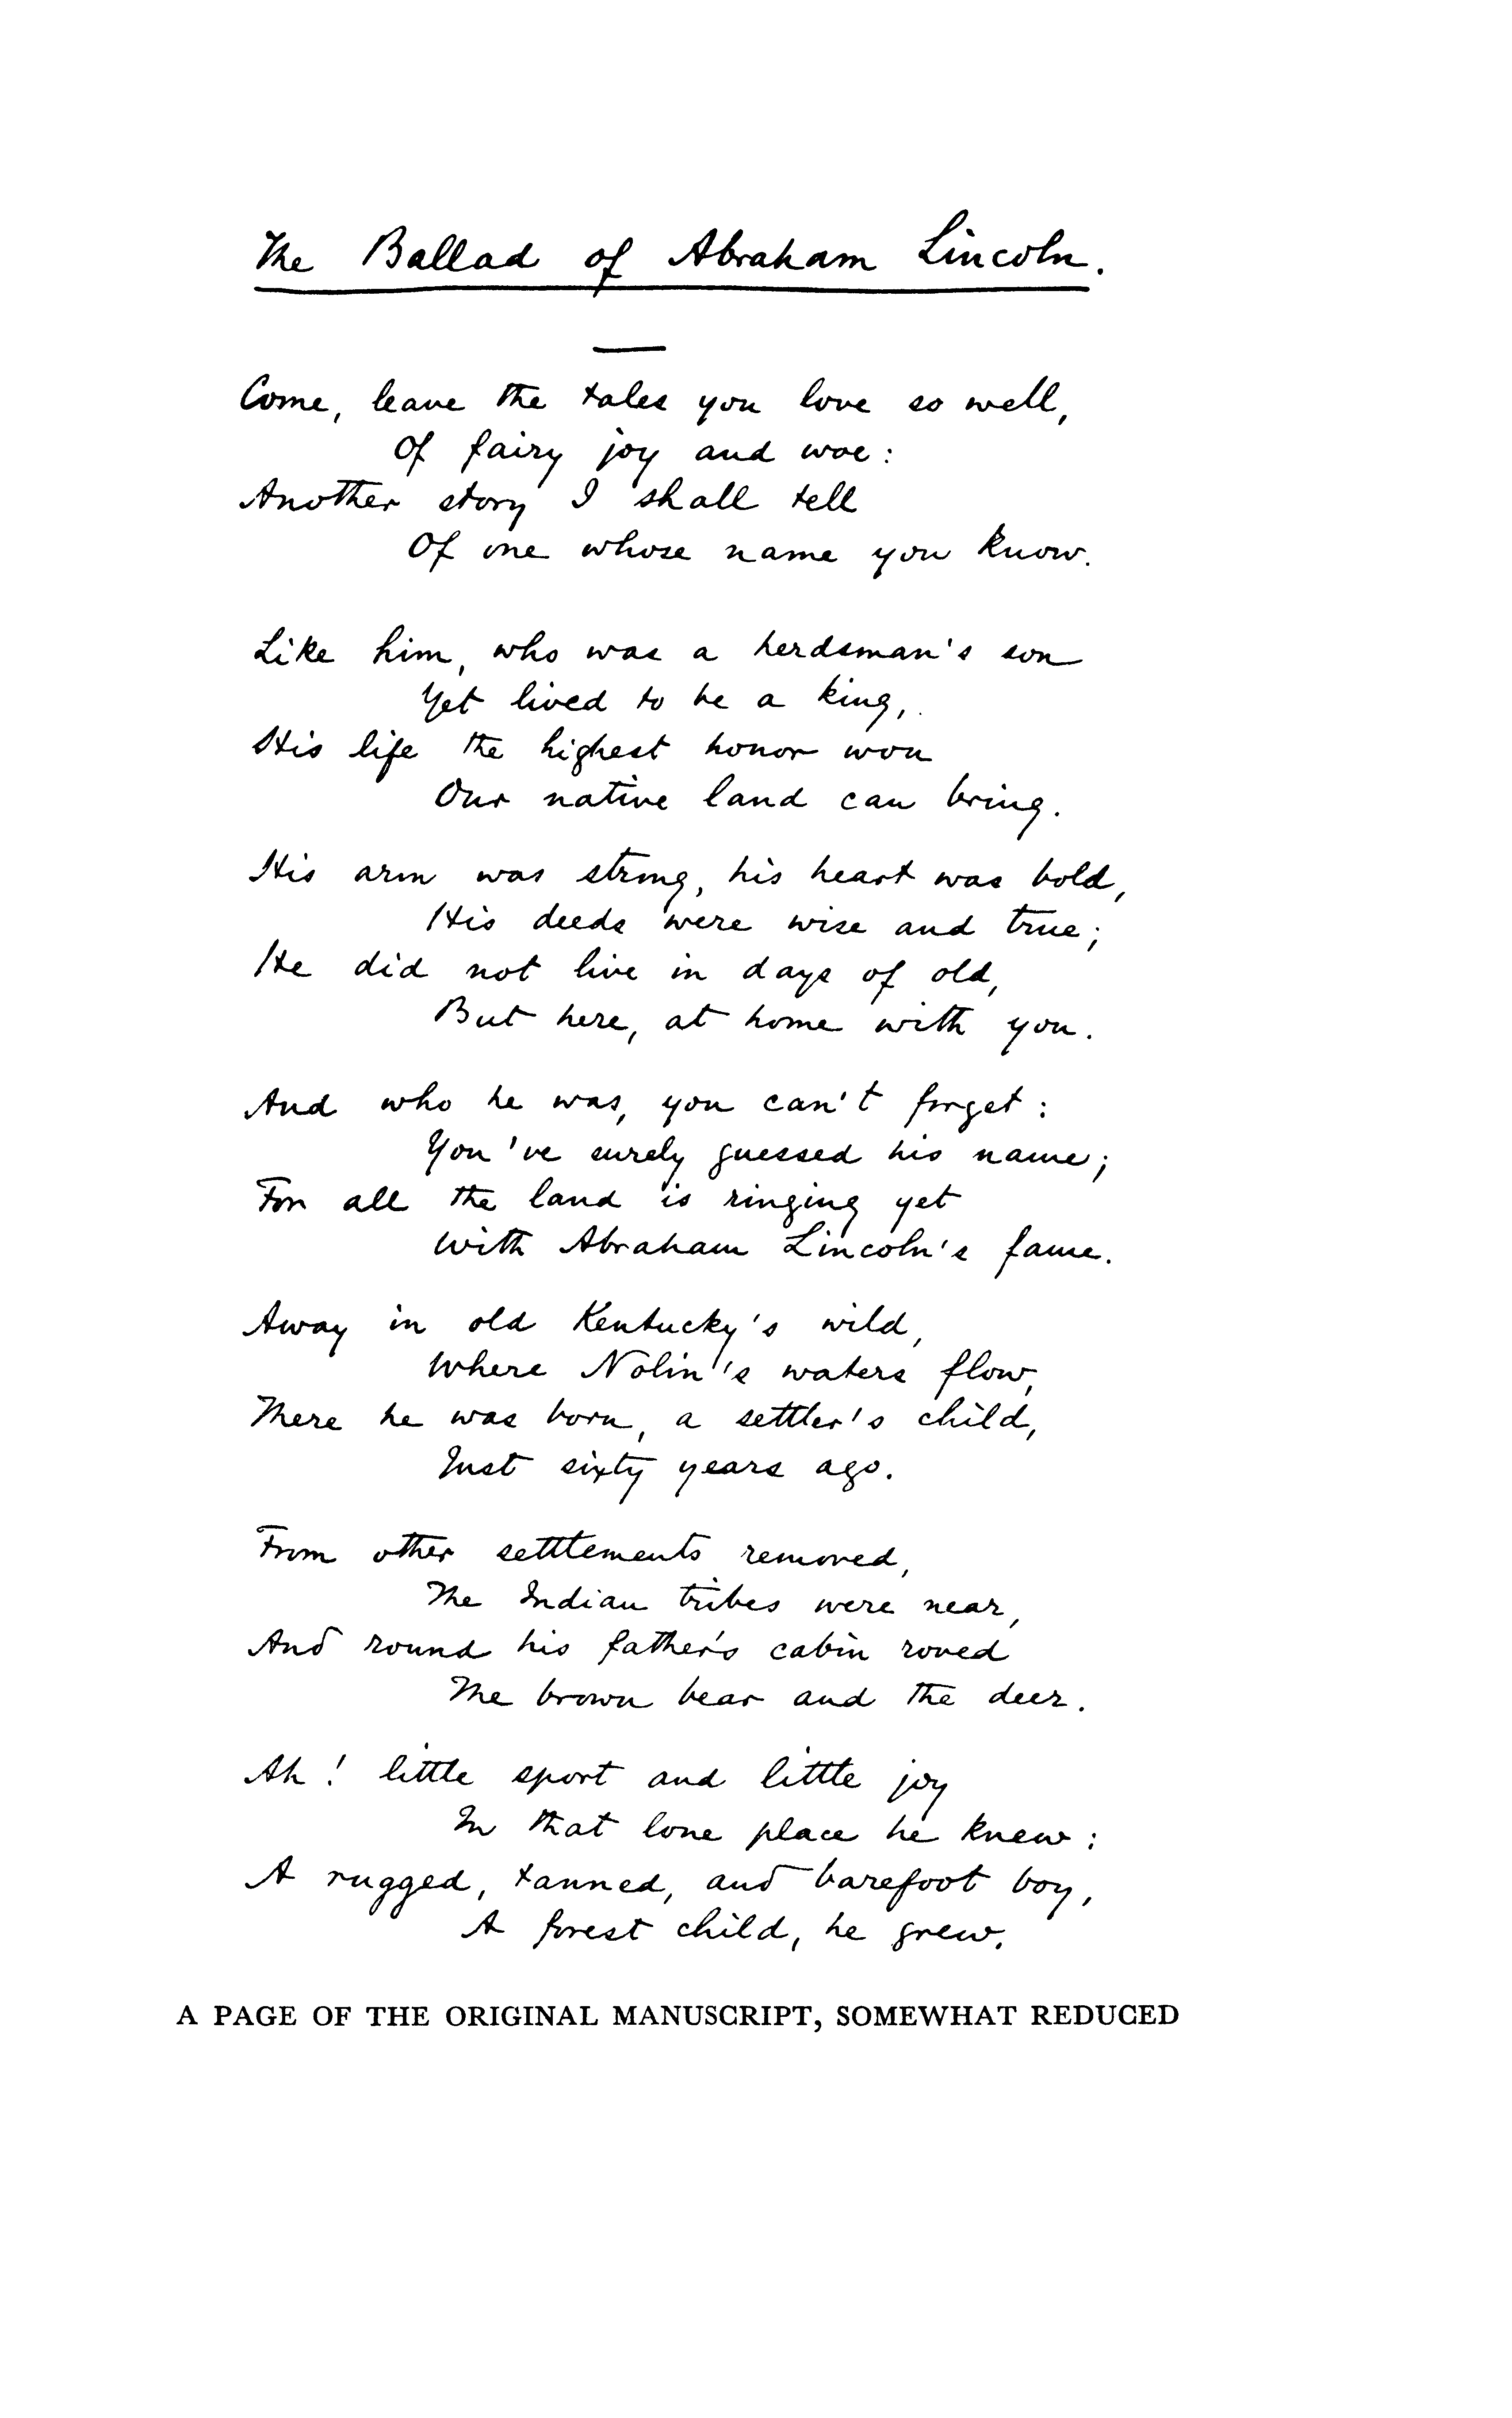 The Ballad of Abraham Lincoln.
Come, leave the tales you love so well,
Of fairy joy and woe:
Another story I shall tell
Of one whose name you know.
Like him, who was a herdsman's son
Yet lived to be a king,
His life the highest honor won
Our native land can bring.
His arm was strong, his heart was bold,
His deeds were wise and true;
He did not live in days of old,
But here, at home with you.
And who he was, you can't forget:
You've surely guessed his name;
For all the land is ringing yet
With Abraham Lincoln's fame.
Away in old Kentucky's wild,
Where Nolin's waters flow,
There he was born, a settler's child,
Just sixty years ago.
From other settlements removed,
The Indian tribes were near,
And round his father's cabin roved
The brown bear and the deer.
Ah! little sport and little joy
In that lone place he knew:
A rugged, tanned, and barefoot boy,
A forest child, he grew.
A PAGE OF THE ORIGINAL MANUSCRIPT, SOMEWHAT REDUCED